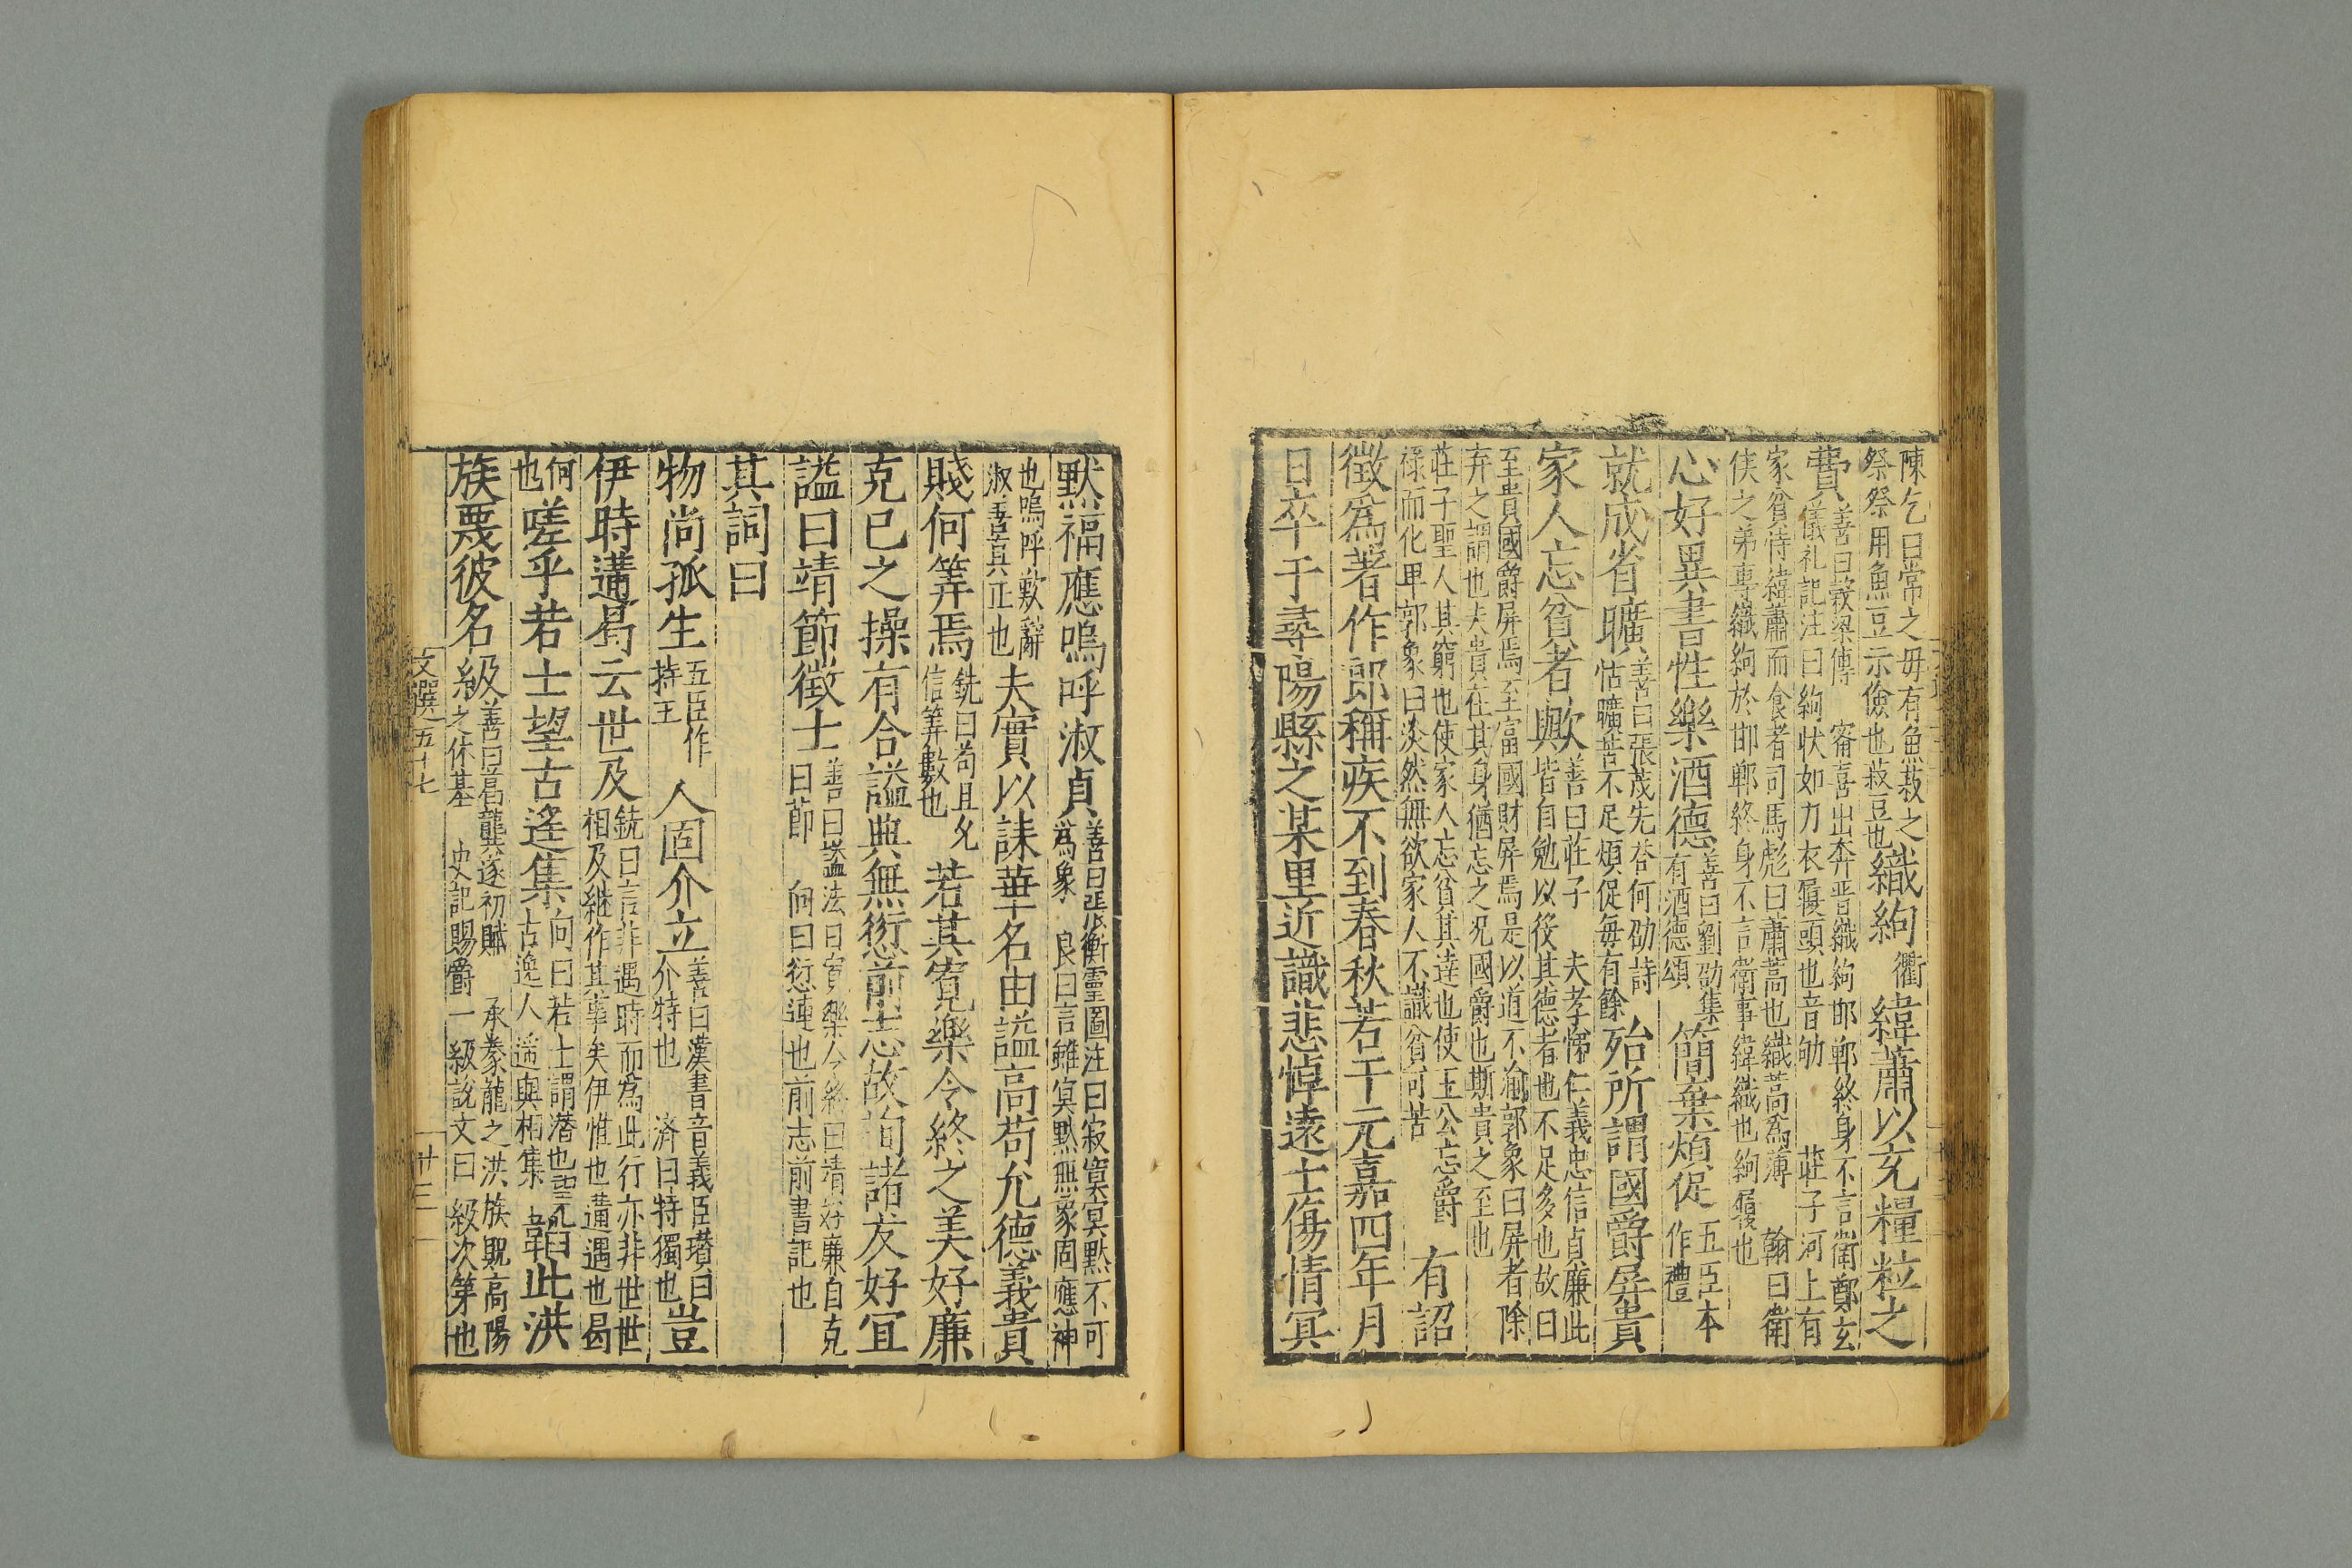 陳乞曰常之毋有魚菽之
祭祭用魚豆示儉也菽豆也
織絇
衢
緯蕭以充糧粒之
費
善曰穀梁傳
甯喜出奔晉織絇邯鄲終身不言衛鄭玄
儀礼記注曰絇狀如刀衣履頭也音劬
莊子河上有
家貧恃緯蕭而食者司馬彪曰蕭蒿也織蒿爲薄
翰曰衛
侯之弟專織絇於邯鄲終身不言衛事緯織也絇履也
心好異書性樂酒德
善曰劉劭集
有酒德頌
簡棄煩促
五臣本
作禮
就成省曠
善曰張茂先荅何劭詩
恬曠苦不足煩促每有餘
殆所謂國爵屏貴
家人忘貧者歟
善曰莊子
夫孝悌仁義忠信貞廉此
皆自勉以役其德者也不足多也故曰
至貴國爵屏焉至富國財屏焉是以道不渝郭象曰屏者除
弃之謂也夫貴在其身猶忘之况國爵也斯貴之至也
莊子聖人其窮也使家人忘貧其達也使王公忘爵
禄而化卑郭象曰淡然無欲家人不識貧可苦
有詔
徵爲著作郎稱疾不到春秋若干元嘉四年月
日卒于尋陽縣之某里近識悲悼遠士傷情冥
默福應嗚呼淑貞
善曰張衡靈圖注曰寂寞冥默不可
爲象
良曰言雖冥默無象固應神
也嗚呼歎辭
淑善真正也
夫實以誄華名由謚高苟允德義貴
賤何筭焉
銑曰苟且允
信筭數也
若其寬樂令終之美好廉
克已之操有合謚典無愆前志故詢諸友好宜
謚曰靖節徴士
善曰謚法曰寬樂令終曰靖好廉自克
曰節
向曰愆違也前志前書記也
其詞曰
物尚孤生
五臣作
持王
人固介立
善曰漢書音義臣瓚曰
介特也
済曰特獨也
豈
伊時遘曷云世及
銑曰言非遇時而爲此行亦非世世
相及継作其事矣伊惟也遘遇也曷
何
也
嗟乎若士望古遙集
向曰若士謂潜也望先
古逸人
遥與相集
韜此洪
族蔑彼名
級
善曰葛龔遂初賦
承豢龍之洪族貺高陽
之休基
史記賜爵一級說文曰級次第也
文選五十七
廿三